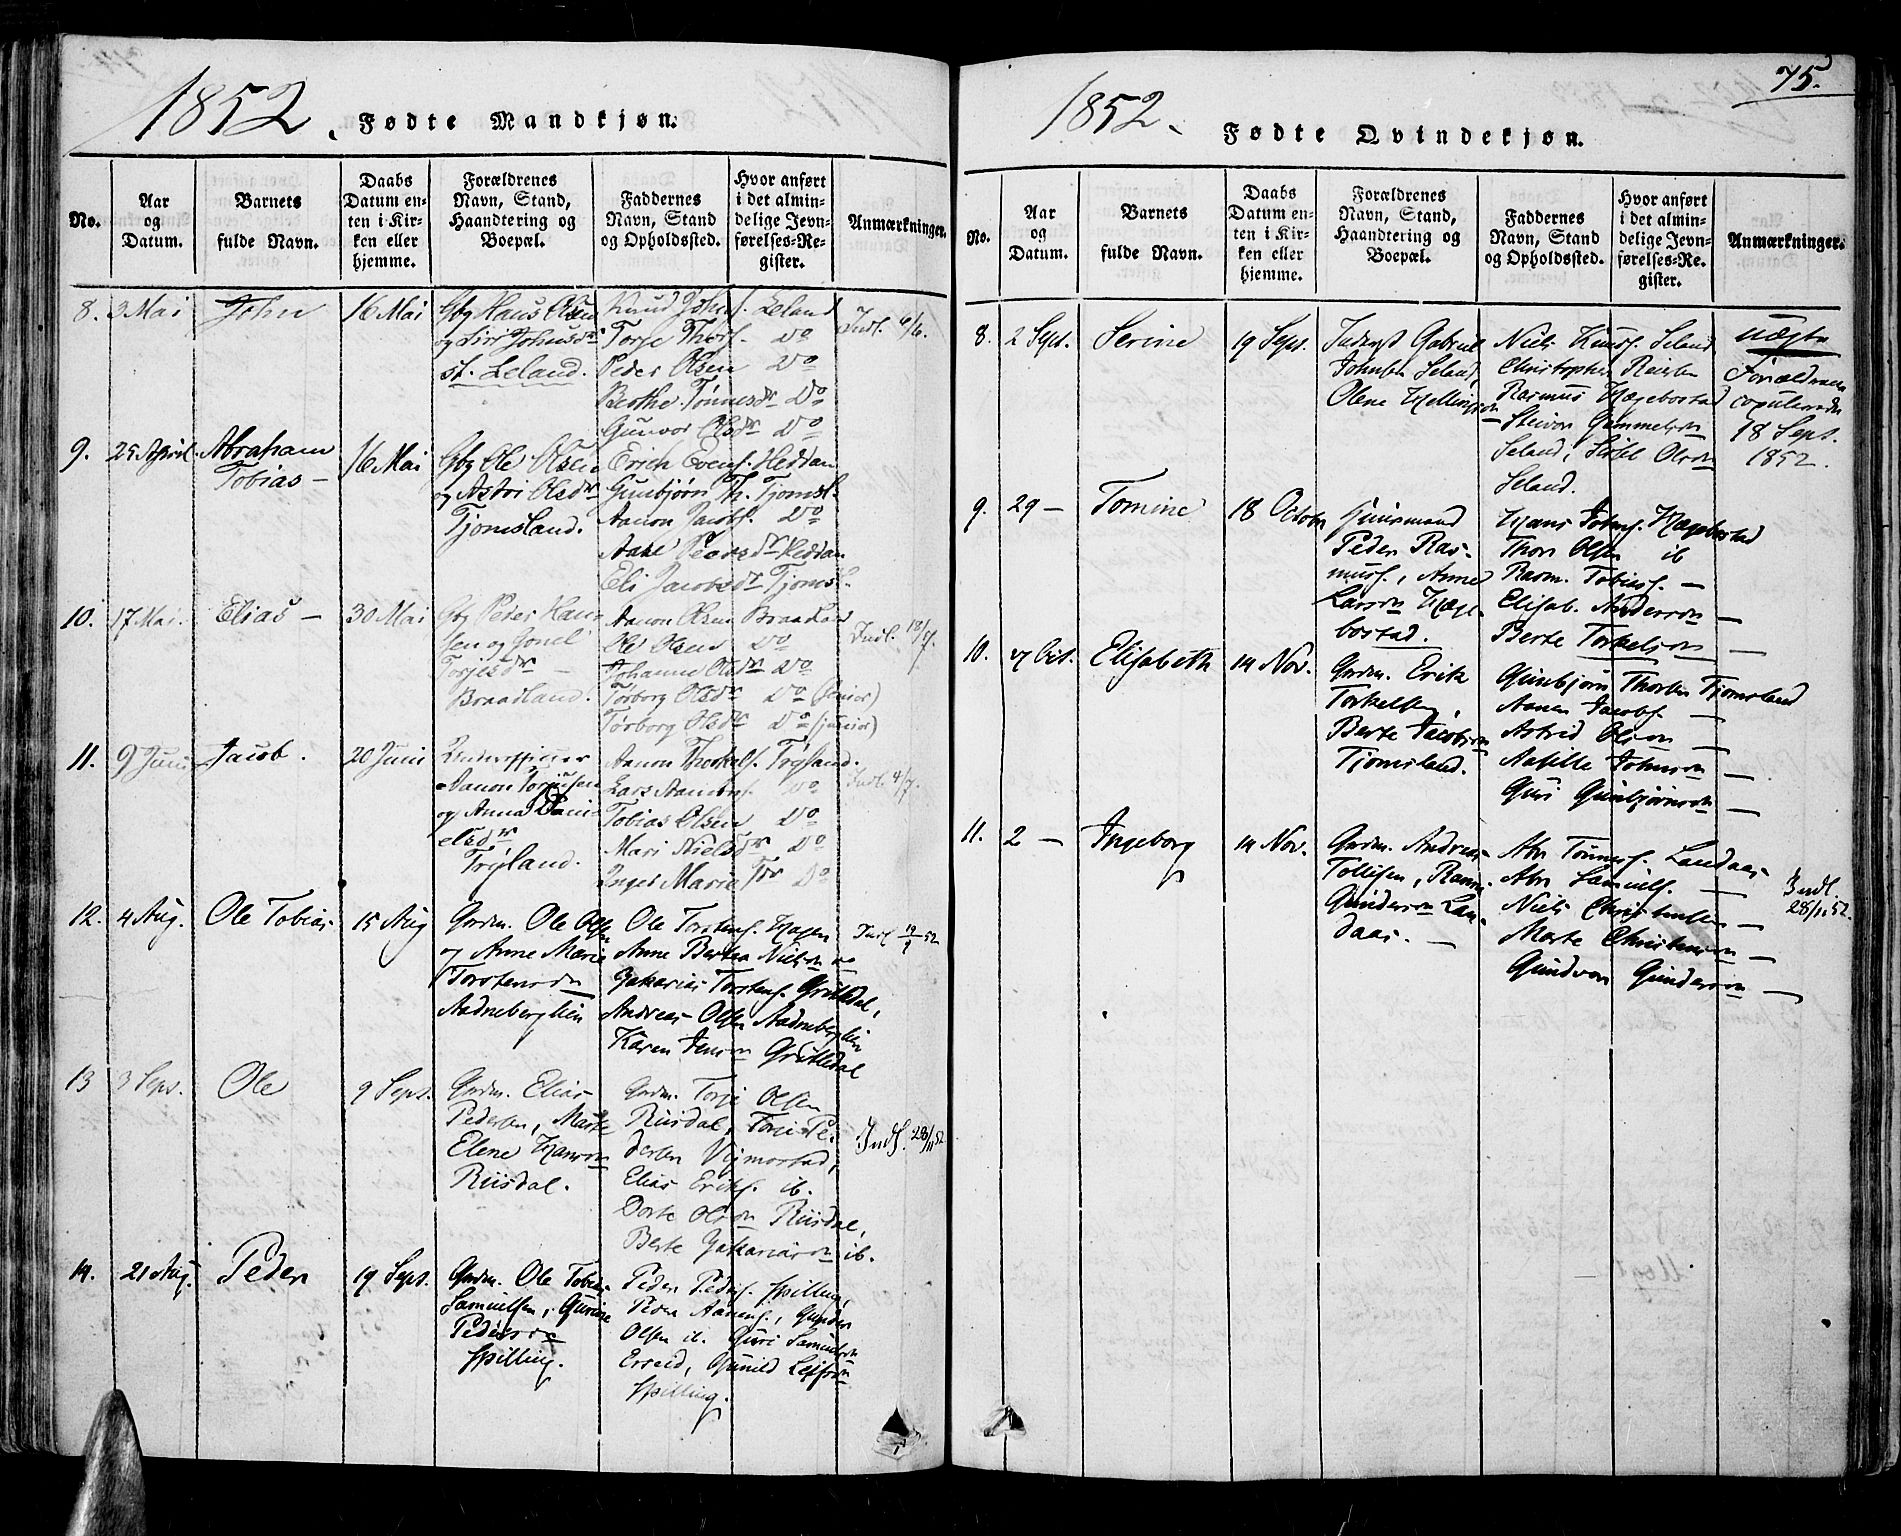 1852. Fødte Mandkjøn.
No.
Aar
og
Datum.
Barnets
fulde Navn.
Daabs
Datum en-
ten i Kir-
ken eller
hjemme.
Forældrenes
Navn, Stand,
Haandtering og
Boepæl.
Faddernes
Navn, Stand
og Opholdssted.
Hvor anført
i det almin-
delige Jevn-
førelses-Re-
gister.
Anmærkninger.
8. 3 Mai John 16 Mai
Gbg Hans Olsen
og Siri Johnsdr
st. Leland.
Knud Johns. Leland
Torje Thors. do
Peder Olsen do
Berthe Tønnesdr do
Gunvor Olsdr do
Indf. 6/6.
9. 25 April Abraham
Tobias – 16 Mai
Gbg Ole Olsen
og Astri Olsdr
Tjomsland.
Erich Evens. Heddan
Gunbjørn Th. Tjomsl.
Aanon Jacobs. do
Aase Pedersdr Heddan
Eli Jacobsdr Tjomsl.
10. 17 Mai. Elias – 30 Mai
Gbg Peder Han-
sen og Gonel
Torjesdr –
Braadland.
Aanon Olsen Braadland
Ole Olsen do
Johanne Olsdr do
Tørborg Olsdr do (senior)
Tørborg Olsdr do (junior)
Indl. 18/7.
11. 9 Juni Jacob. 20 Juni
Underofficeer
Aanon Torjussen
og Anna Dani-
elsdr
Trÿland.
Aanon Thorkels. Trÿland.
Lars Aanons. do
Tobias Olsen do
Mari Nielsdr do
Inger Marie Tdr do
Indl. 4/7.
12. 4 Aug. Ole Tobias 15 Aug
Grdm. Ole Olsen
og Anne Marie
Torstensdn
Aadneberglien
Ole Torstens. Hagen
Anne Bertea Nielsdn do
Zakarias Torstens. Gritledal,
Andreas Olsen Aadneberglien
Karen Jensdn Gritledal
Indl 19/9 52
13 3 Seps. Ole 9 Sept.
Grdm. Elias
Pedersen, Marte
Elene Hansdn
Riisdal.
Grdm. Torje Olsen
Riisdal, Torjus Pe-
dersen Vigmostad,
Elias Eriks. ib.
Dorte Olsdn Riisdal,
Berte Zakariasdn ib.
Indl. 28/11 52
14. 21 Aug. Peder 19 Sept.
Grdm. Ole Tobias
Samuelsen, Gurine
Pedersdn
Spilling.
Peder Peders. Spilling,
Peder Aanens., Gunder
Olsen ib. Guri Samuelsdn
Erseid, Gunild Leifsdn
Spilling.
75.
1852. Fødte Qvindekjøn.
No.
Aar
og
Datum.
Barnets
fulde Navn.
Daabs
Datum en-
ten i Kir-
ken eller
hjemme.
Forældrenes
Navn, Stand,
Haandtering og
Boepæl.
Faddernes
Navn, Stand
og Opholdssted.
Hvor anført
i det almin-
delige Jevn-
førelses-Re-
gister.
Anmærkninger.
8. 2 Sept. Serine 19 Sept.
Inderst Gabriel
Johnsen Seland,
Olene Hellingsdn
Niels Knuds. Seland
Christopher Reiersen
Rasmus Hægebostad
Steivor Gammelsdn
Seland, Sissel Olsdn
Seland.
uægte
Forældrene
copulerede
18 Sept.
1852.
9. 29 – Tomine 18 October
Huusmand
Peder Ras-
muss., Anne
Larsdn Hæge-
bostad.
Hans Johns. Hægebostad
Thore Olsen ib
Rasm. Tobiass. –
Elisab. Andersdn –
Berte Torkelsdn –
10. 7 Oct. Elisabeth 14 Nov.
Grdm. Erik
Torkelsen,
Berte Jacobsdn
Tjomsland.
Gunbjørn Thorsen Tjomsland
Aanen Jacobs. –
Astrid Olsdn –
Aasille Johnsdn –
Guri Gunbjørnsdn –
11. 2 – Ingeborg 14 Nov.
Grdm. Andreas
Tollefsen, Ramn.
Gundersdn Lan-
daas. –
Abr Tønness. Landaas
Abr Samuels. –
Niels Christensen –
Marte Christensdn –
Gundvor Gundersdn –
Indl.
28/11 52.